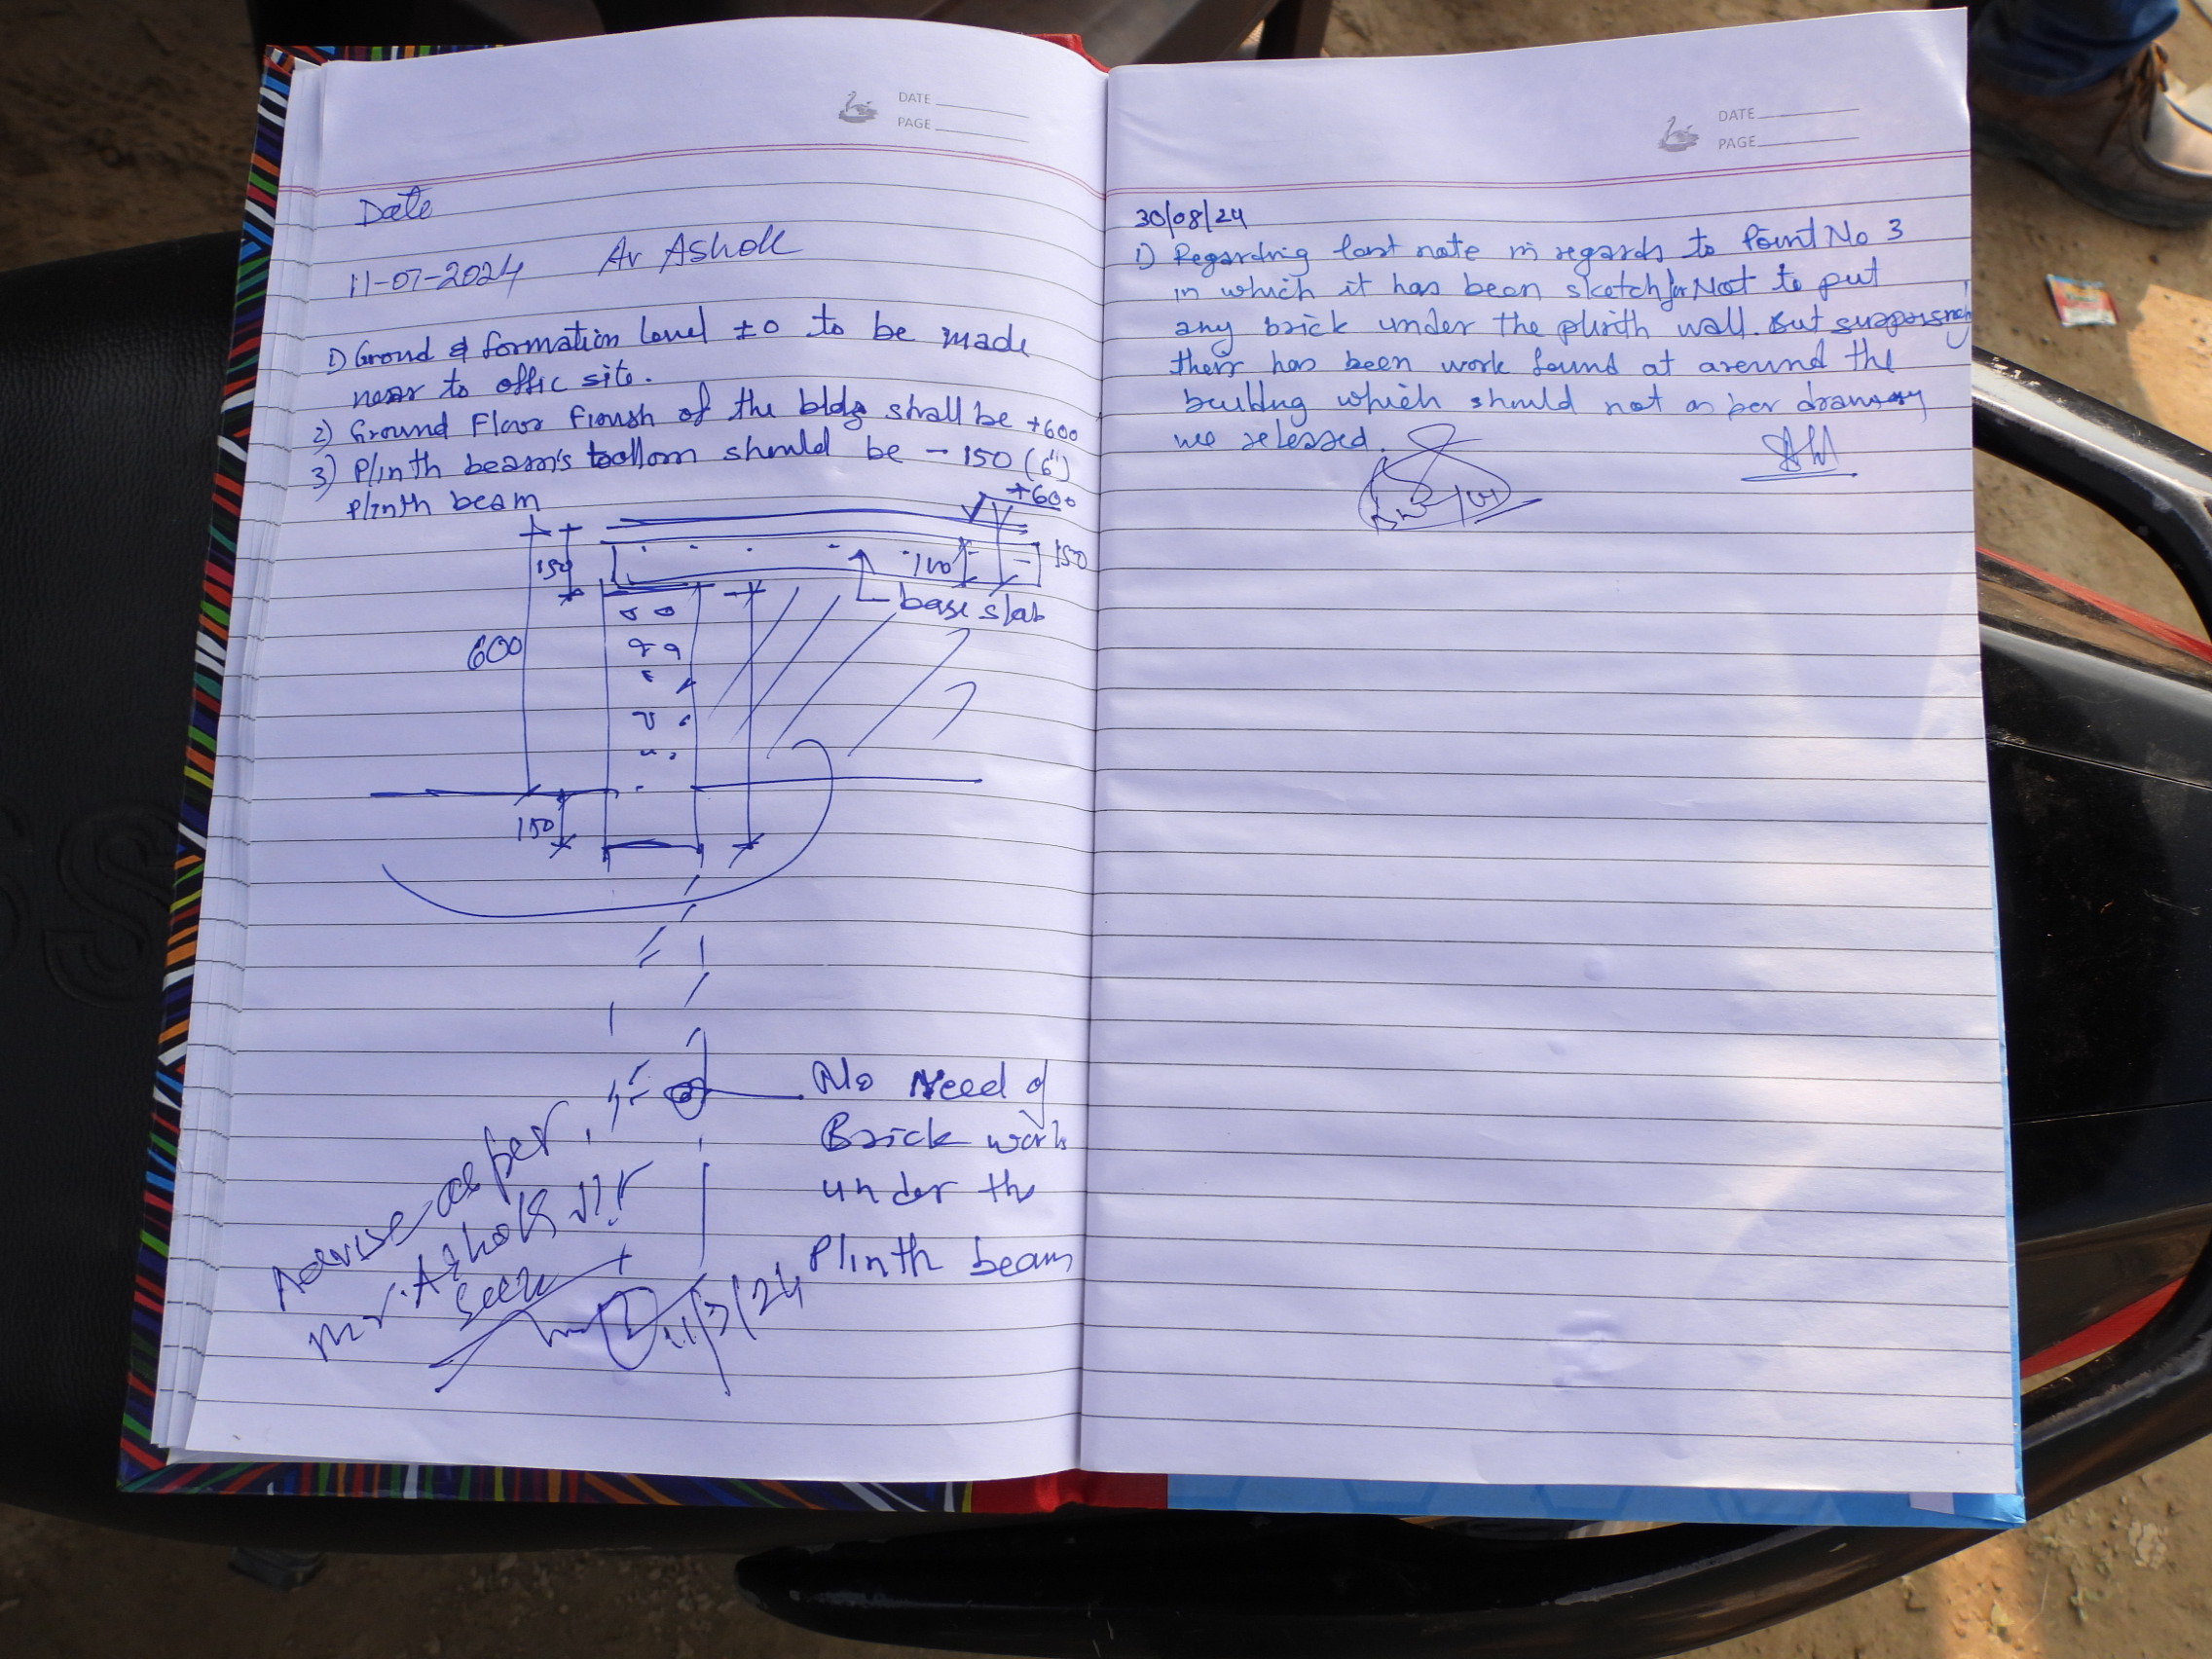 DATE
PAGE
Date
11-07-2024 Ar Ashok
1) Ground & formation level ±0 to be made
near to offic site.
2) Ground Floor finish of the bldg shall be +600
3) Plinth beam's bottom should be - 150 (6")
plinth beam
+600
150
100
150
base slab
600
150
No Need of
Brick work
under the
Plinth beam
Advise as per
Mr. Ashok
Seen
11/7/24
DATE
PAGE
30/08/24
1) Regarding last note in regards to Point No 3
in which it has been sketch for Not to put
any brick under the plinth wall. But
there has been work found at around the
building which should not as per
we released.